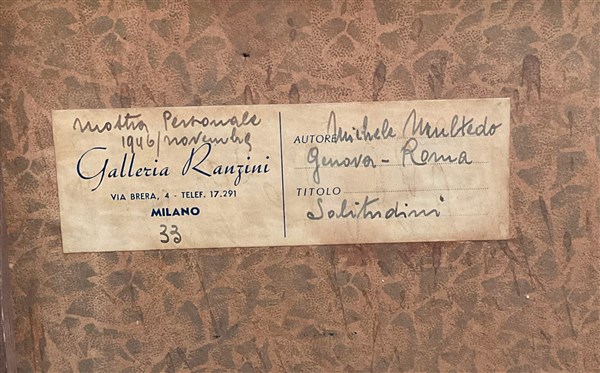 Mostra Personale
1946/novembre
Galleria Ranzini
VIA BRERA, 4 - TELEF. 17.291
MILANO
33
AUTORE Michele Multedo
Genova - Roma
TITOLO
Solitudini